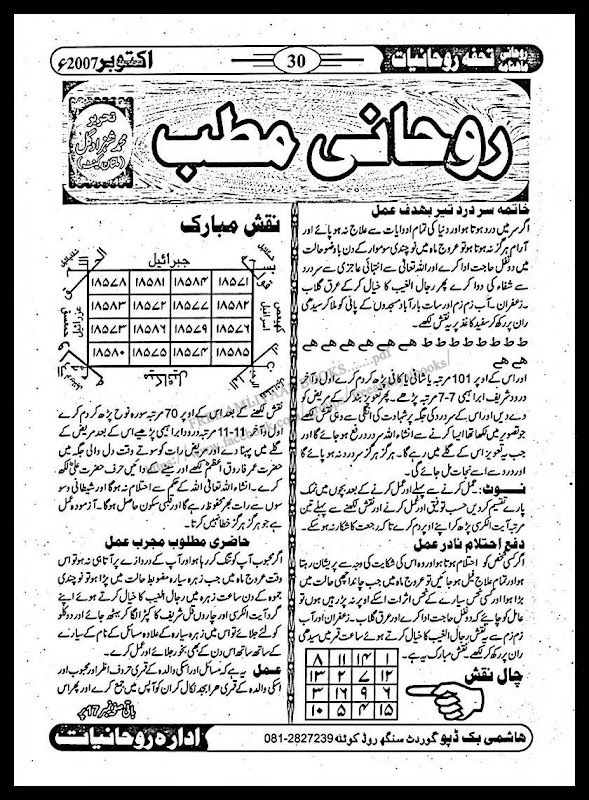 روحانی ماہنامہ تحفہ روحانیات
30
اکتوبر 2007ء
روحانی مطب
تحریر
محمد شہزاد گل
(ملتان کینٹ)
خاتمہ سر درد تیر بہدف عمل
اگر سر میں درد ہوتا ہو اور دنیا کی تمام ادویات سے علاج نہ ہو پائے اور
آرام ہرگز نہ ہو تو عروج ماہ میں نوچندی سوموار کے دن باوضو حالت
میں دو نفل حاجت ادا کرے اور اللہ تعالٰی سے انتہائی عاجزی سے سر درد
سے شفاء کی دعا کرے پھر رجال الغیب کا خیال کر کے عرق گلاب
۔ زعفران۔ آب زم زم اور سات بار آباد مسجدوں کے پانی کو ملا کر سیدھی
ران پر رکھ کر سفید کاغذ پر یہ نقش لکھے۔
ط ط ط ط ط ط ط ھے ھے ھے ھے ھے
ھے ھے
اور اس کے اوپر 101 مرتبہ یا شافی یا کافی پڑھ کر دم کرے اول و آخر
درود شریف ابراہیمی 7-7 مرتبہ پڑھے۔ پھر تعویز بند کر کے مریض کو
دے دیں اور اس کے سر درد کی جگہ پر شہادت کی انگلی سے وہی نقش لکھے
جو تصویر میں لکھا تھا ایسا کرنے سے انشاء اللہ سر درد رفع ہو جائے گا اور
جب یہ تعویز اس کے گلے میں رہے گا۔ ہرگز ہرگز سر درد نہ ہو پائے گا
اور درد سے اسے نجات مل جائے گی۔
نوٹ: عمل کرنے سے پہلے اور عمل کرنے کے بعد بچوں میں نمک
پارے تقسیم کر دیں حسب توفیق اور عمل کرنے اور نقش لکھنے سے پہلے تین
مرتبہ آیت الکرسی پڑھ کر اپنے اوپر دم کرے تا کہ رجعت کا شکار نہ ہو سکے۔
دفع احتلام نادر عمل
اگر کسی شخص کو احتلام ہوتا ہو اور وہ اس کی شکایت کی وجہ سے پریشان رہتا
ہو اور تمام علاج فیل ہو جائیں تو عروج ماہ میں جب چاند اچھی حالت میں
پڑا ہوا اور کسی نحس سیارے کے نحس اثرات اسکے اوپر نہ پڑ رہیں ہوں تو
عامل کو چاہئے کہ دو نفل حاجت ادا کرے اور عرق گلاب۔ زعفران اور آب
زم زم سے یہ نقش رجال الغیب کا خیال کرتے ہوئے ساعت قمر میں سیدھی
ران پر رکھ کر لکھے۔ نقش مبارک یہ ہے۔
چال نقش
۸ ۱۱ ۱۴ ۱
۱۳ ۲ ۷ ۱۲
۳ ۱۶ ۹ ۶
۱۰ ۵ ۴ ۱۵
نقش مبارک
جبرائیل
۱۸۵۷۸ ۱۸۵۸۱ ۱۸۵۸۴ ۱۸۵۷۱
۱۸۵۸۳ ۱۸۵۷۲ ۱۸۵۷۷ ۱۸۵۸۲
۱۸۵۷۳ ۱۸۵۸۶ ۱۸۵۷۹ ۱۸۵۷۶
۱۸۵۸۰ ۱۸۵۷۵ ۱۸۵۷۴ ۱۸۵۸۵
کھیعص
اسرافیل
عزرائیل
حمعسق
میکائیل
نقش لکھنے کے بعد اس کے اوپر 70 مرتبہ سورہ نوح پڑھ کر دم کرے
اول و آخر 11-11 مرتبہ درود ابراہیمی پڑھیے اس کے بعد مریض کے
گلے میں پہنا دے اور مریض رات کو سوتے وقت دل والی جگہ میں
حضرت عمر فاروق اعظمؓ لکھے اور سینے کے دائیں حرف حضرت علیؓ لکھ
کرے۔ انشاء اللہ تعالٰی اللہ کے حکم سے احتلام نہ ہو گا اور شیطانی وسو
سوں سے رات بھر محفوظ رہے گا اور قلبی سکون حاصل ہو گا۔ آزمودہ عمل
ہے جو ہرگز ہرگز خطا نہیں کرتا۔
حاضری مطلوب مجرب عمل
اگر محبوب آپ کو تنگ کر رہا ہو اور آپ کے دروازے پر آتا ہی نہ ہو تو اس
وقت عروج ماہ میں جب زہرہ سیارہ مضبوط حالت میں پڑا ہو تو نوچندی
جمعہ کے دن ساعت زہرہ میں رجال الغیب کا خیال کرتے ہوئے حصار
گرد آیت الکرسی اور چاروں قل شریف کا کھڑا لگا کر بیٹھ جائے اور دو کو
کوئلے جلائے تو اس میں زہرہ سیارہ کے علاوہ مسائل کے نام کے سیارے
کے ساتھ ساتھ اس دن کے بھی بخور جلائے اور عمل کرے۔
عمل یہ ہے کہ مسائل اور اسکی والدہ کے قمری حروف اظہر اور محبوب اور
اسکی والدہ کے قمری حرا بجد نکال کر ان کو آپس میں جمع کرے اور پھر اس
باقی صفحہ نمبر 17 پر
ہاشمی بک ڈپو گوردت سنگھ روڈ کوئٹہ 081-2827239
ادارہ روحانیات